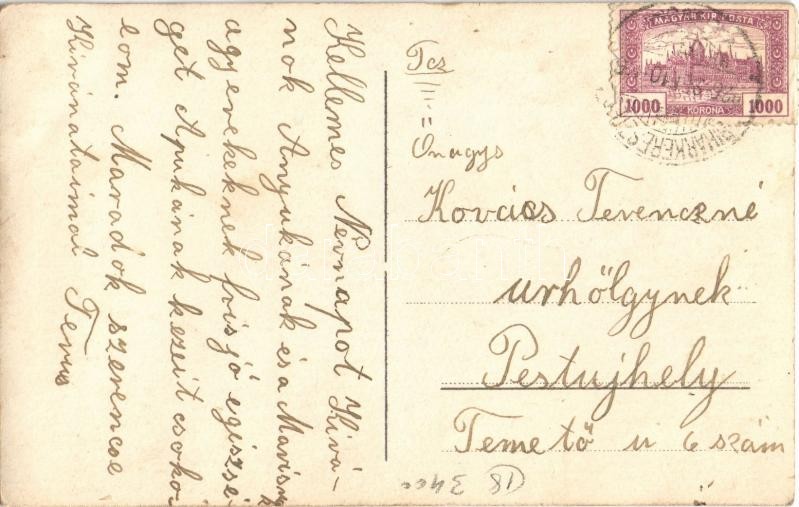 Kellemes Névnapot Kivá-
nok Anyukának és a Marisnak
a gyerekeknek friss jó egiszsé
get Apukának kezeit csoko
lom. Maradok szerencse
Kivánataimal Terus
Tcs
Önagys
Kovács Ferenczné
urhölgynek
Pestujhely
Temető u 6 szám
MAGYAR KIR. POSTA
1000
1000
KORONA
BIHARKERESZTES
18
3400